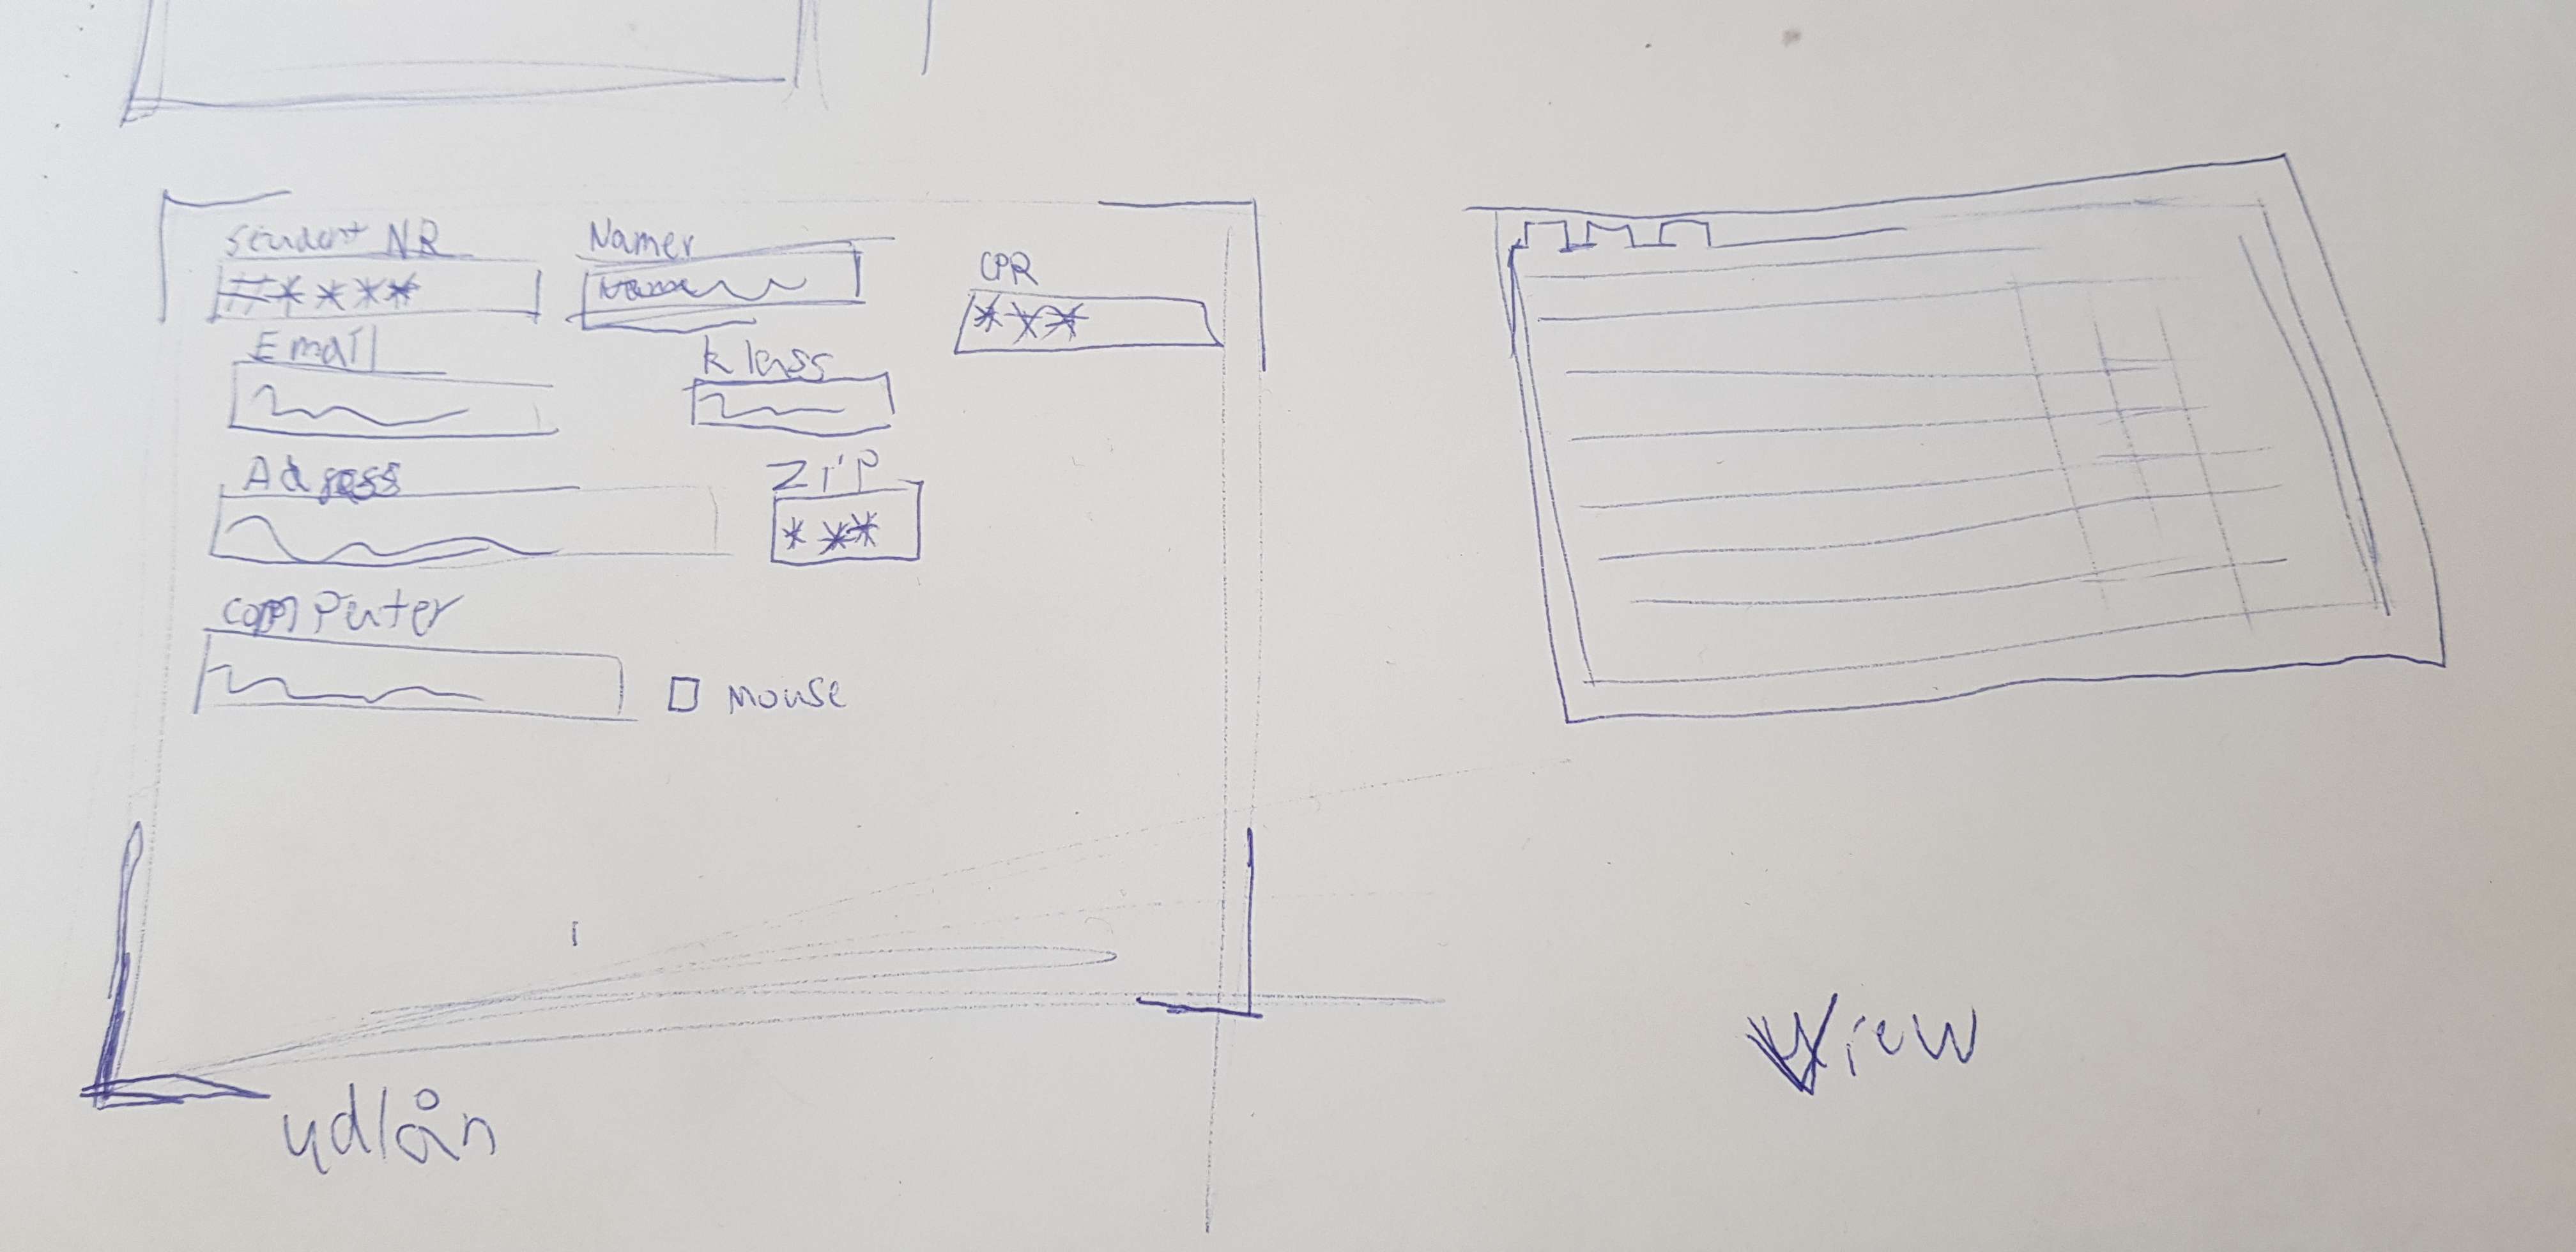 Student NR
Namer
CPR
#****
***
Email
klass
Adress
Zip
***
computer
mouse
udlån
View